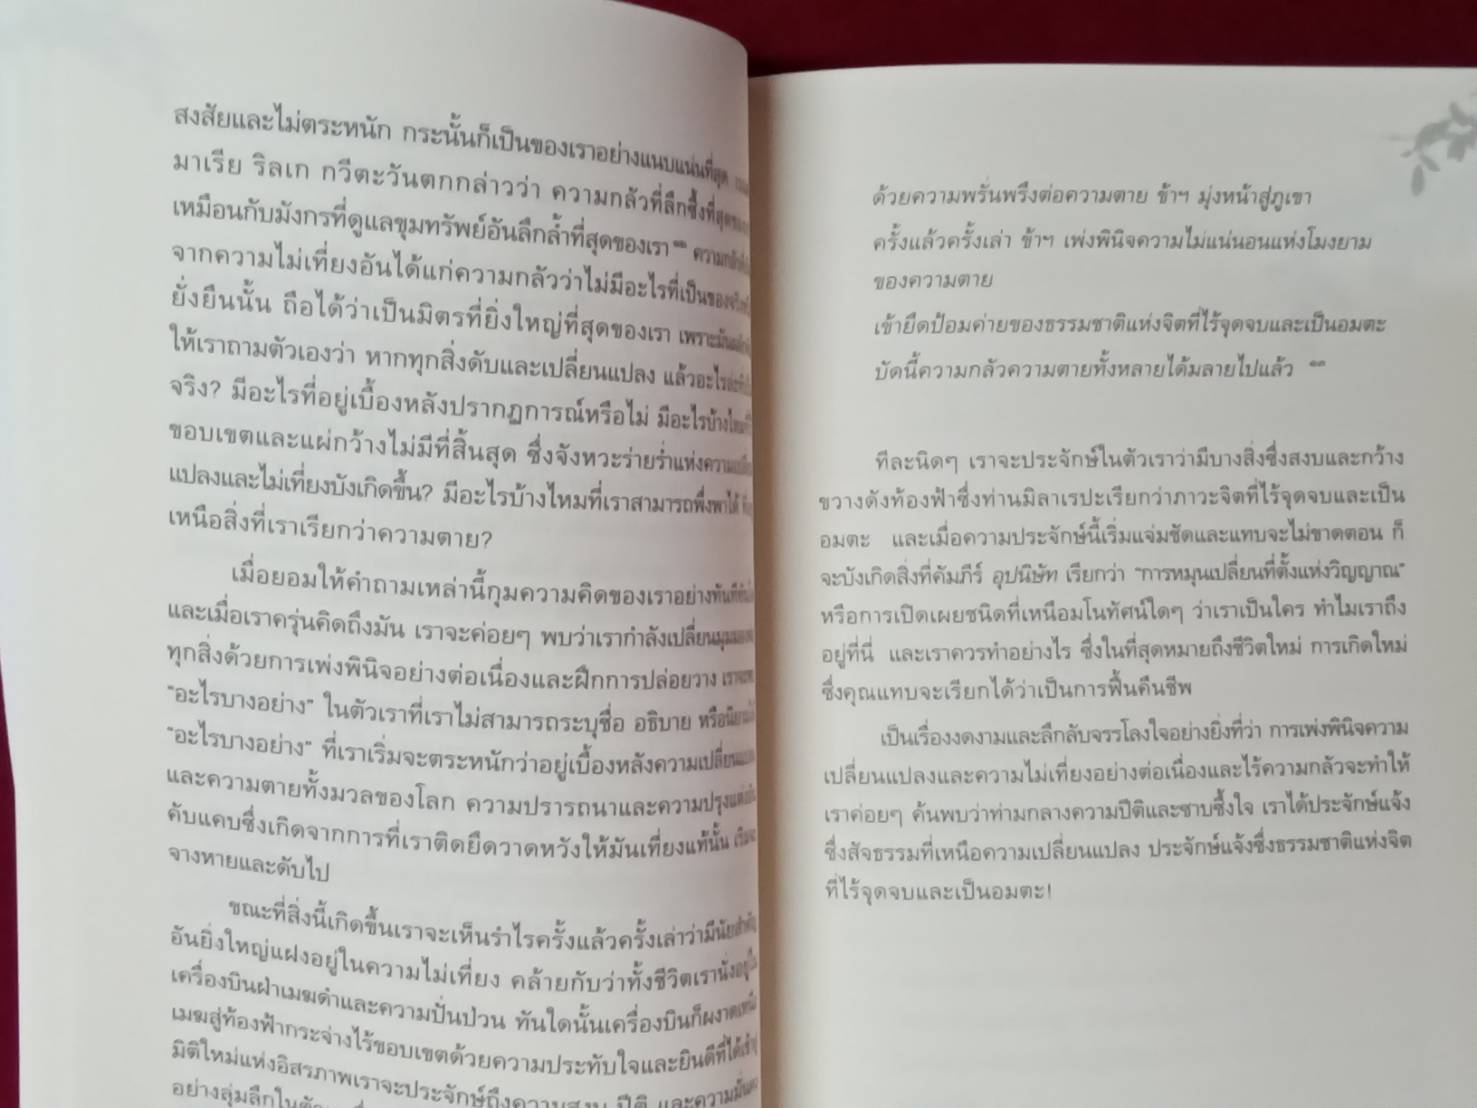 สงสัยและไม่ตระหนัก กระนั้นก็เป็นของเราอย่างแนบแน่นที่สุด
มาเรีย ริลเก กวีตะวันตกกล่าวว่า ความกลัวที่ลึกซึ้งที่สุดของ
เหมือนกับมังกรที่ดูแลขุมทรัพย์อันลึกล้ำที่สุดของเรา
จากความไม่เที่ยงอันได้แก่ความกลัวว่าไม่มีอะไรที่เป็นของจริง
ยั่งยืนนั้น ถือได้ว่าเป็นมิตรที่ยิ่งใหญ่ที่สุดของเรา เพราะมัน
ให้เราถามตัวเองว่า หากทุกสิ่งดับและเปลี่ยนแปลง แล้วอะไร
จริง? มีอะไรที่อยู่เบื้องหลังปรากฏการณ์หรือไม่ มีอะไรบ้างไหม
ขอบเขตและแผ่กว้างไม่มีที่สิ้นสุด ซึ่งจังหวะร่ายรำแห่งความ
แปลงและไม่เที่ยงบังเกิดขึ้น? มีอะไรบ้างไหมที่เราสามารถพึ่งพาได้
เหนือสิ่งที่เราเรียกว่าความตาย?
เมื่อยอมให้คำถามเหล่านี้กุมความคิดของเราอย่างทันทีทันใด
และเมื่อเราครุ่นคิดถึงมัน เราจะค่อยๆ พบว่าเรากำลังเปลี่ยนมุมมอง
ทุกสิ่งด้วยการเพ่งพินิจอย่างต่อเนื่องและฝึกการปล่อยวาง เราจะพบ
"อะไรบางอย่าง" ในตัวเราที่เราไม่สามารถระบุชื่อ อธิบาย หรือนิยาม
"อะไรบางอย่าง" ที่เราเริ่มจะตระหนักว่าอยู่เบื้องหลังความเปลี่ยนแปลง
และความตายทั้งมวลของโลก ความปรารถนาและความปรุงแต่ง
คับแคบซึ่งเกิดจากการที่เราติดยึดวาดหวังให้มันเที่ยงแท้นั้น เริ่มจะ
จางหายและดับไป
ขณะที่สิ่งนี้เกิดขึ้นเราจะเห็นรำไรครั้งแล้วครั้งเล่าว่ามีนัยสำคัญ
อันยิ่งใหญ่แฝงอยู่ในความไม่เที่ยง คล้ายกับว่าทั้งชีวิตเรานั่งอยู่ใน
เครื่องบินฝ่าเมฆดำและความปั่นป่วน ทันใดนั้นเครื่องบินก็ผงาดเหนือ
เมฆสู่ท้องฟ้ากระจ่างไร้ขอบเขตด้วยความประทับใจและยินดีที่ได้เข้าสู่
มิติใหม่แห่งอิสรภาพเราจะประจักษ์ถึงความสงบ ปีติ และความมั่นคง
อย่างลุ่มลึกใน
ด้วยความพรั่นพรึงต่อความตาย ข้าฯ มุ่งหน้าสู่ภูเขา
ครั้งแล้วครั้งเล่า ข้าฯ เพ่งพินิจความไม่แน่นอนแห่งโมงยาม
ของความตาย
เข้ายึดป้อมค่ายของธรรมชาติแห่งจิตที่ไร้จุดจบและเป็นอมตะ
บัดนี้ความกลัวความตายทั้งหลายได้มลายไปแล้ว
ทีละนิดๆ เราจะประจักษ์ในตัวเราว่ามีบางสิ่งซึ่งสงบและกว้าง
ขวางดังท้องฟ้าซึ่งท่านมิลาเรปะเรียกว่าภาวะจิตที่ไร้จุดจบและเป็น
อมตะ และเมื่อความประจักษ์นี้เริ่มแจ่มชัดและแทบจะไม่ขาดตอน ก็
จะบังเกิดสิ่งที่คัมภีร์ อุปนิษัท เรียกว่า "การหมุนเปลี่ยนที่ตั้งแห่งวิญญาณ"
หรือการเปิดเผยชนิดที่เหนือมโนทัศน์ใดๆ ว่าเราเป็นใคร ทำไมเราถึง
อยู่ที่นี่ และเราควรทำอย่างไร ซึ่งในที่สุดหมายถึงชีวิตใหม่ การเกิดใหม่
ซึ่งคุณแทบจะเรียกได้ว่าเป็นการฟื้นคืนชีพ
เป็นเรื่องงดงามและลึกลับจรรโลงใจอย่างยิ่งที่ว่า การเพ่งพินิจความ
เปลี่ยนแปลงและความไม่เที่ยงอย่างต่อเนื่องและไร้ความกลัวจะทำให้
เราค่อยๆ ค้นพบว่าท่ามกลางความปีติและซาบซึ้งใจ เราได้ประจักษ์แจ้ง
ซึ่งสัจธรรมที่เหนือความเปลี่ยนแปลง ประจักษ์แจ้งซึ่งธรรมชาติแห่งจิต
ที่ไร้จุดจบและเป็นอมตะ!